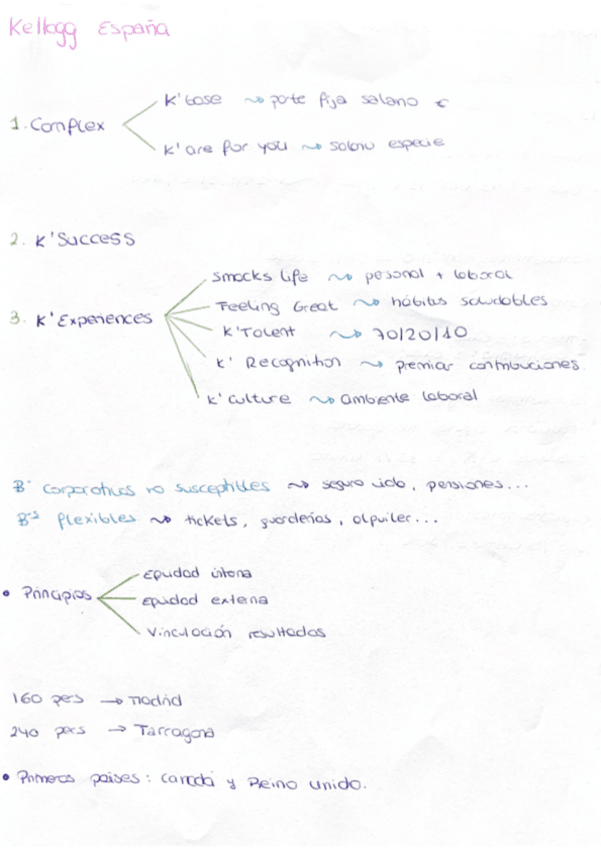 Kellogg España
K'base ~> parte fija salario €
1. Complex
K'are for you ~> salario especie
2. K'Success
Smacks Life ~> personal + laboral
Feeling Great ~> hábitos saludables
3. K'Experiences
K'Talent ~> 70/20/10
K' Recognition ~> premiar contribuciones
K' culture ~> ambiente laboral
Bº corporativos no susceptibles ~> seguro vida, pensiones...
Bºs flexibles ~> tickets, guarderías, alquiler...
Equidad interna
• Principios
Equidad externa
Vinculación resultados
160 pers → Madrid
240 pers → Tarragona
• Primeros países: Canadá y Reino Unido.